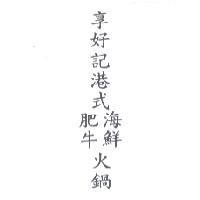 享好記港式海鮮肥牛火鍋